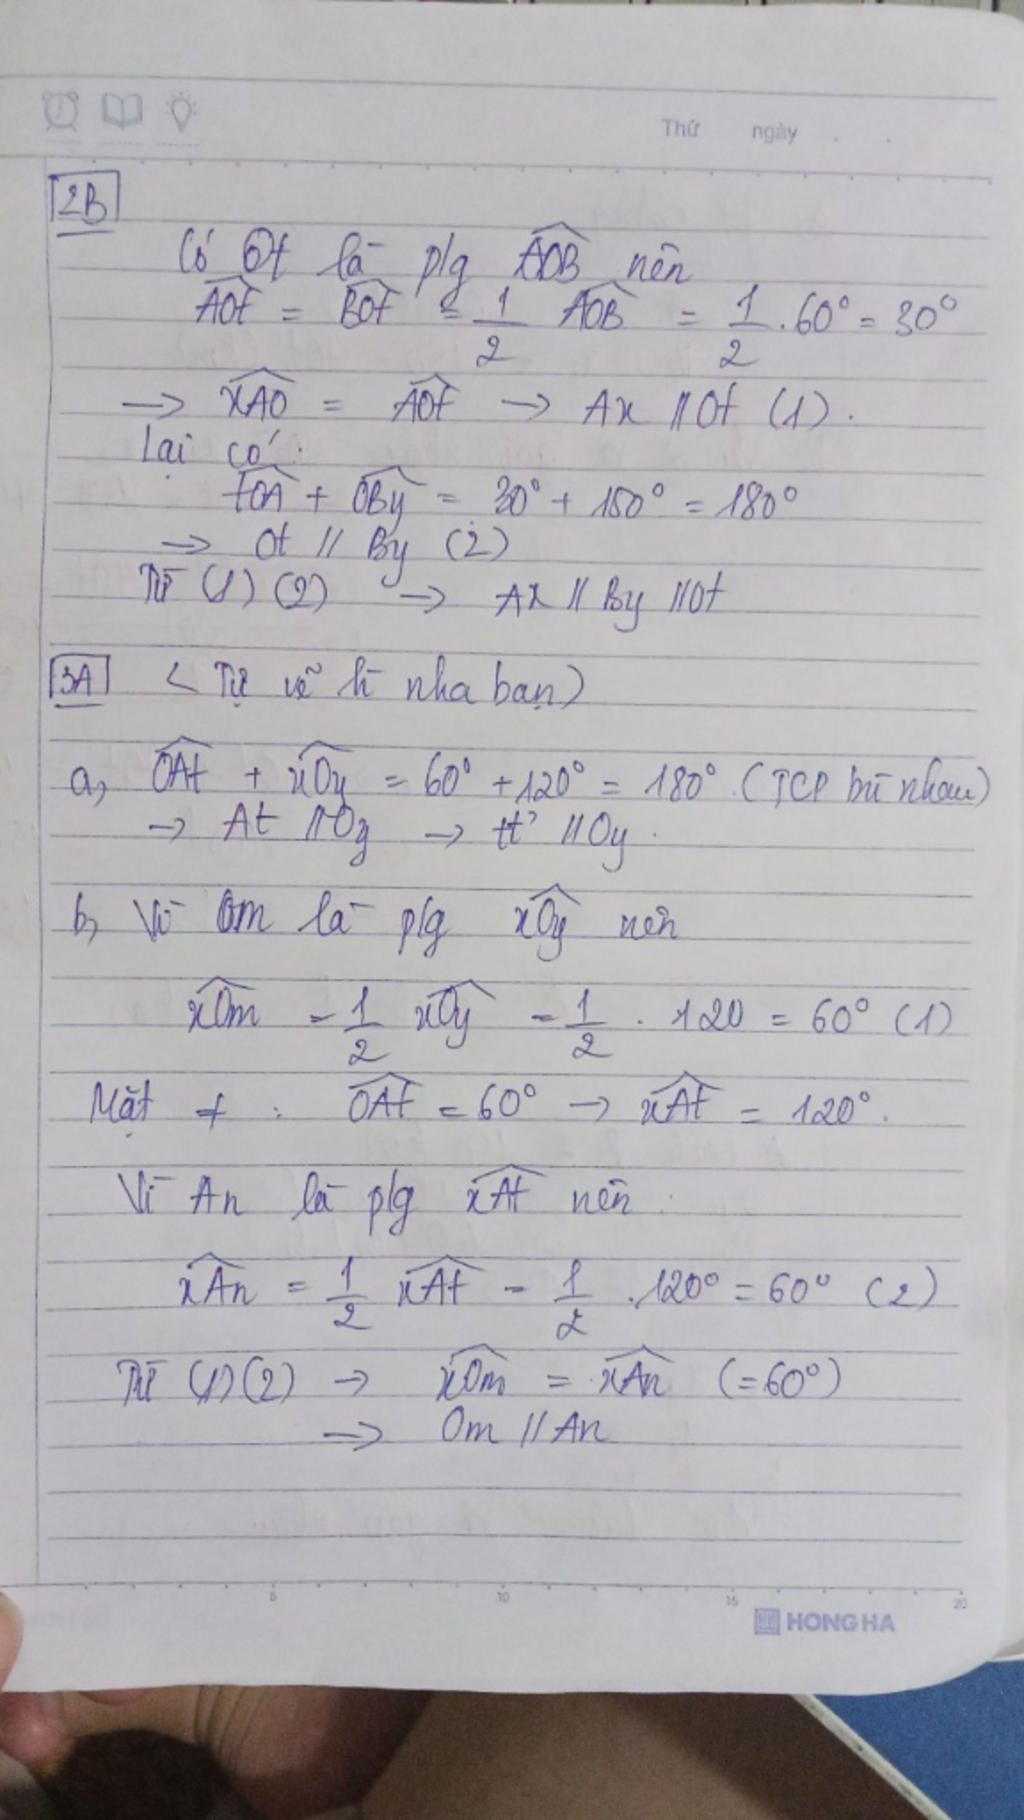 Thứ ngày . .
2B
Có Ot là p/g \widehat{AOB} nên
\widehat{AOt} = \widehat{BOt} = \frac{1}{2} \widehat{AOB} = \frac{1}{2} . 60° = 30°
→ \widehat{xAO} = \widehat{AOt} → Ax // Ot (1).
Lại có:
\widehat{tOA} + \widehat{OBy} = 30° + 150° = 180°
→ Ot // By (2)
Từ (1) (2) → Ax // By // Ot
3A < Tự vẽ h nha bạn)
a, \widehat{OAt} + \widehat{xOy} = 60° + 120° = 180° (TCP bù nhau)
→ At // Oy → tt' // Oy.
b, Vì Om là p/g \widehat{xOy} nên
\widehat{xOm} = \frac{1}{2} \widehat{xOy} = \frac{1}{2} . 120 = 60° (1)
Mặt ≠ : \widehat{OAt} = 60° → \widehat{xAt} = 120°.
Vì An là p/g \widehat{xAt} nên :
\widehat{xAn} = \frac{1}{2} \widehat{xAt} = \frac{1}{2} . 120° = 60° (2)
Từ (1) (2) → \widehat{xOm} = \widehat{xAn} (= 60°)
→ Om // An
5 10 15 20
HONG HA